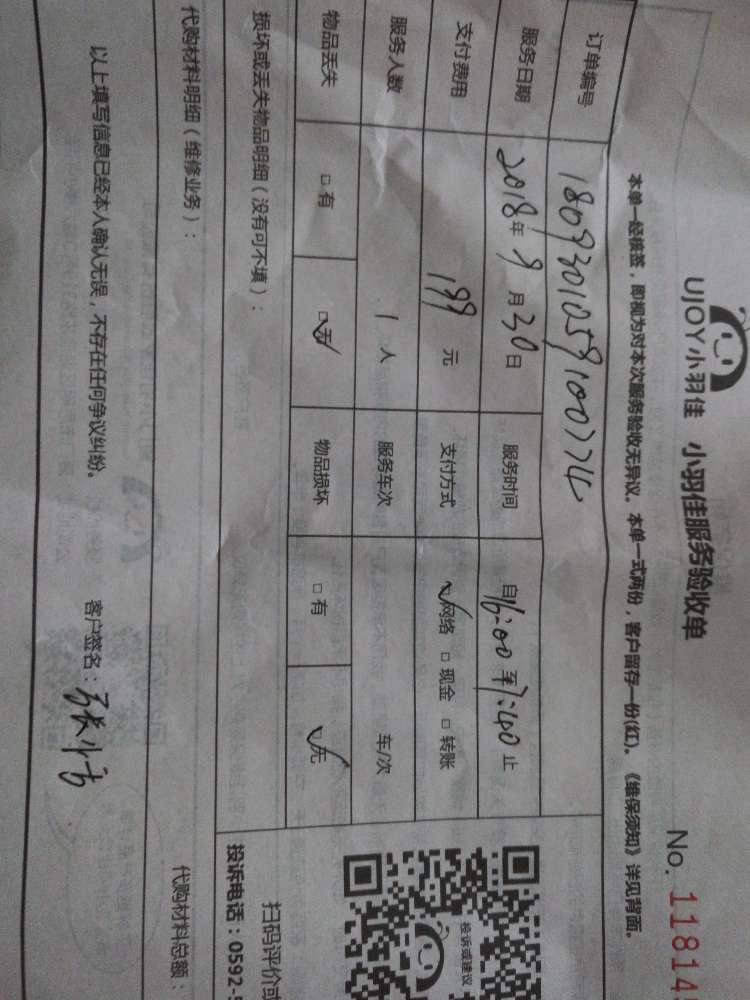 UJOY小羽佳 小羽佳服务验收单
No. 11814
本单一经核签，即视为对本次服务验收无异议。本单一式两份，客户留存一份(红)。《维保须知》详见背面。
订单编号 180930105910074
服务日期 2018年9月30日 服务时间 自16:00至7:40止
支付费用 199元 支付方式 网络 现金 转账
服务人数 1人 服务车次 车/次
物品丢失 有 无 物品损坏 有 无
损坏或丢失物品明细（没有可不填）：
代购材料明细（维修业务）：
代购材料总额：
以上填写信息已经本人确认无误，不存在任何争议纠纷。
客户签名：
投诉或建议
扫码评价或
投诉电话：0592-5